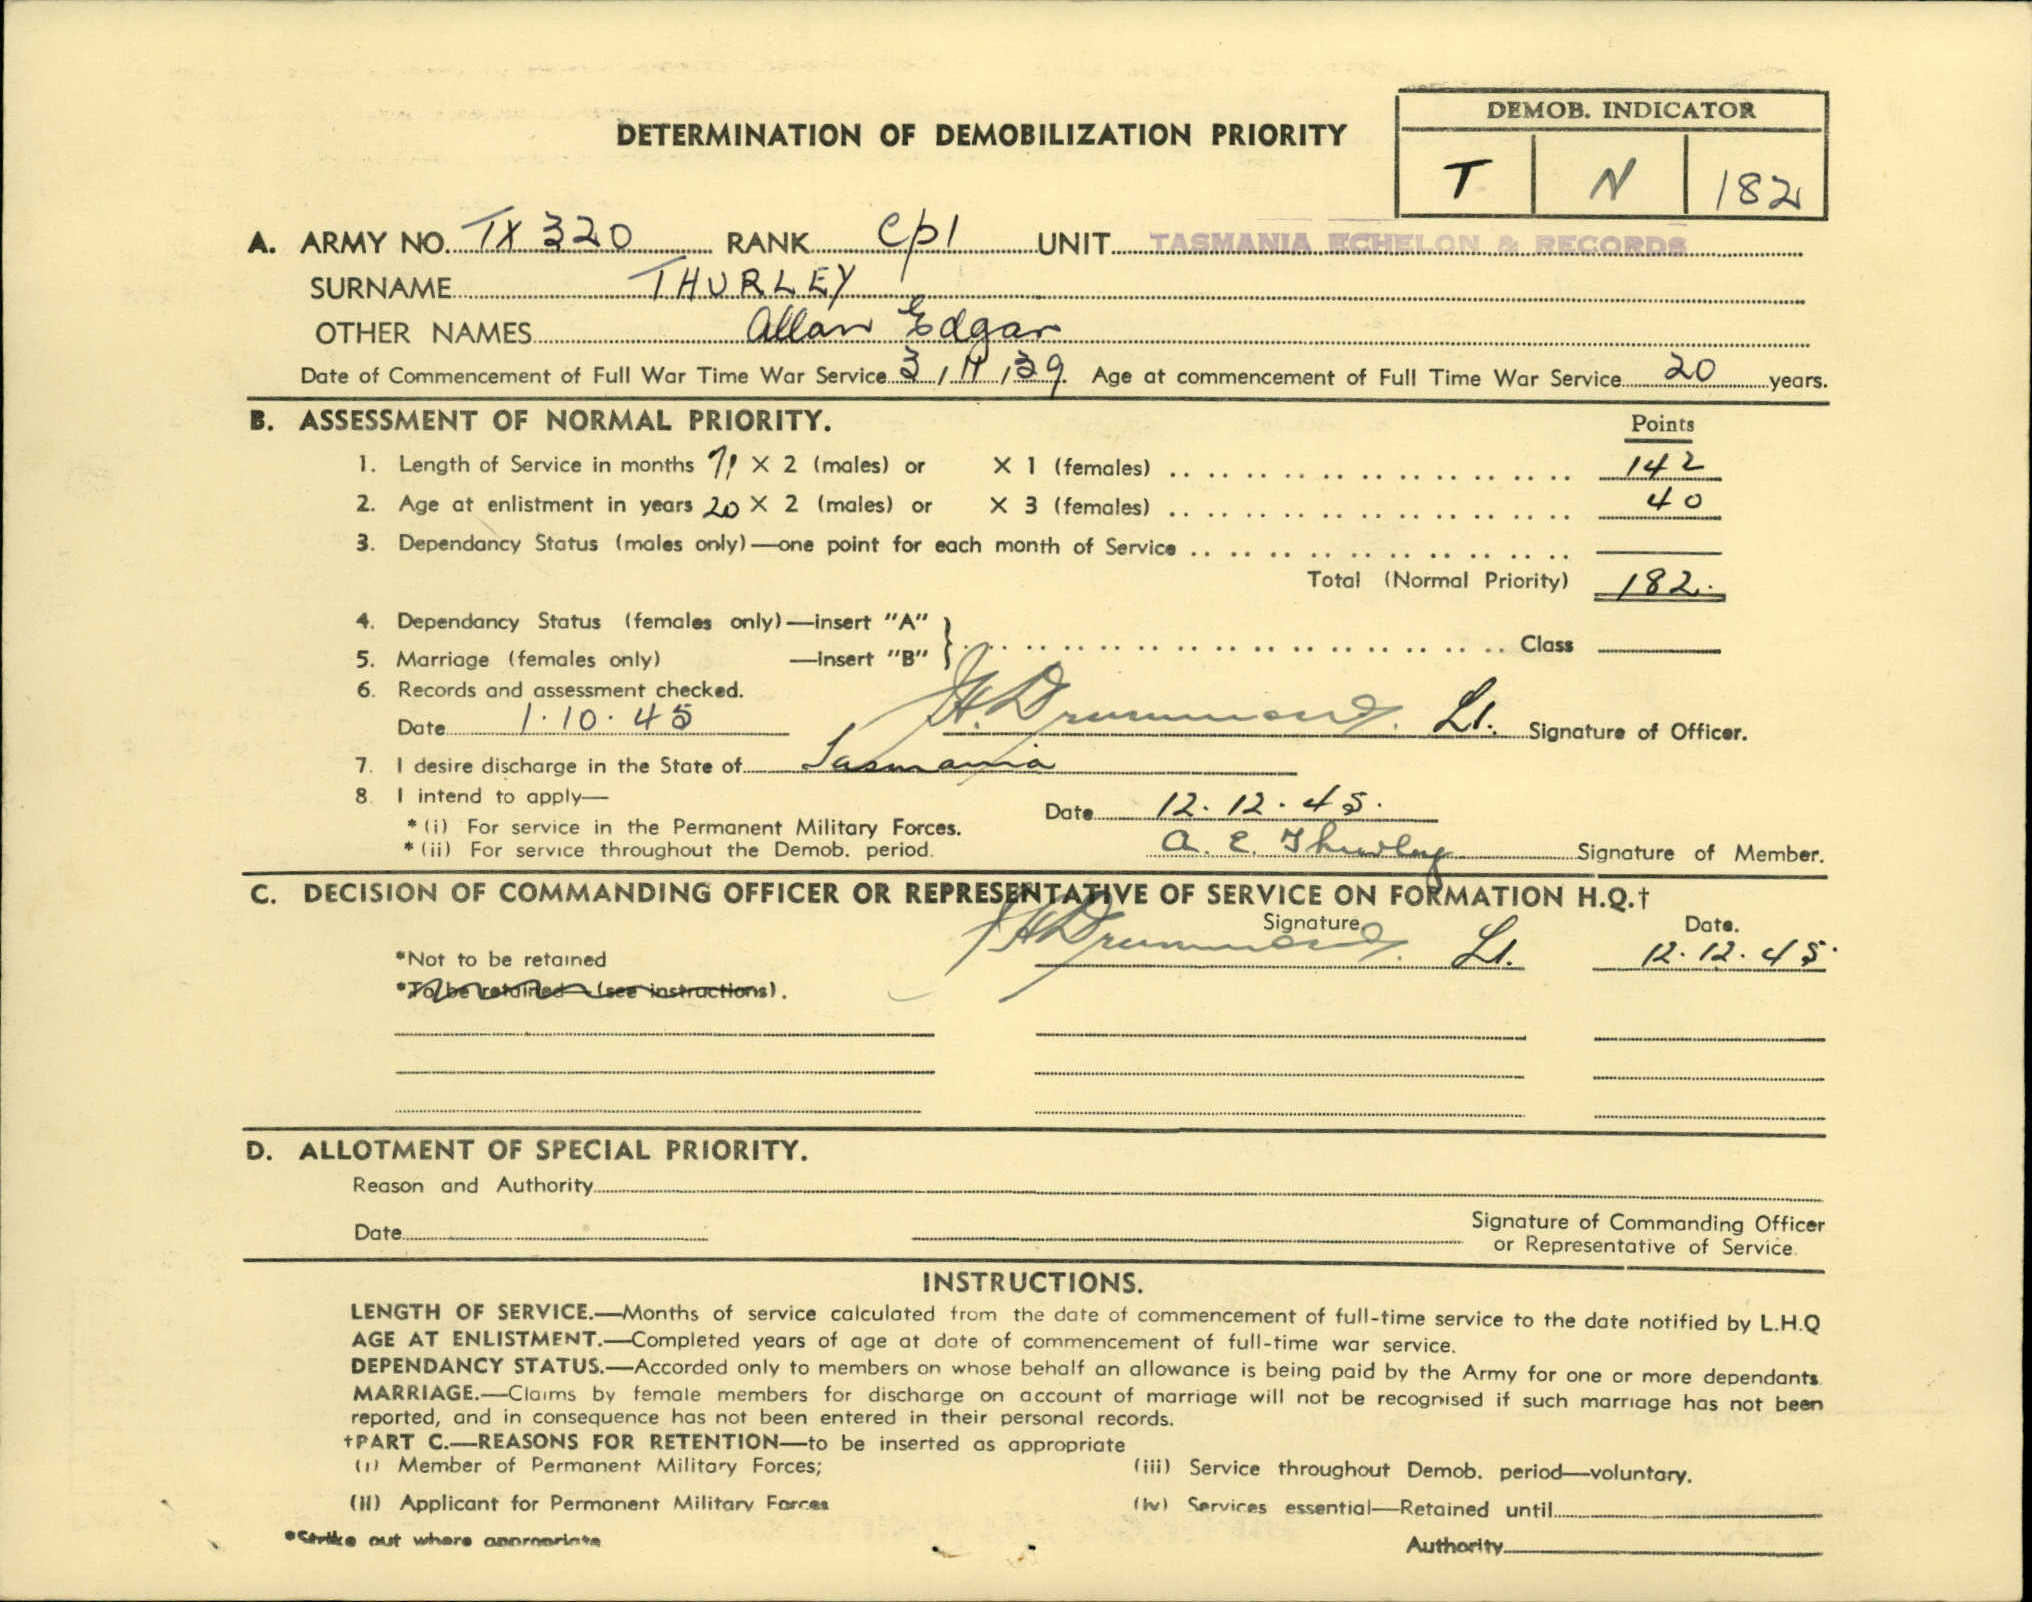 DEMOB. INDICATOR
DETERMINATION OF DEMOBILIZATION PRIORITY
T N 182
A. ARMY NO. TX 320 RANK Cpl UNIT TASMANIA ECHELON & RECORDS
SURNAME THURLEY
OTHER NAMES Allan Edgar
Date of Commencement of Full War Time War Service 3 / 11 / 39 Age at commencement of Full Time War Service 20 years.
B. ASSESSMENT OF NORMAL PRIORITY. Points
1. Length of Service in months 71 × 2 (males) or × 1 (females) 142
2. Age at enlistment in years 20 × 2 (males) or × 3 (females) 40
3. Dependancy Status (males only)—one point for each month of Service
Total (Normal Priority) 182.
4. Dependancy Status (females only)—insert "A"
5. Marriage (females only) —insert "B" } Class
6. Records and assessment checked.
Date 1.10.45 H. Drummond. Lt. Signature of Officer.
7. I desire discharge in the State of Tasmania
8. I intend to apply—
Date 12.12.45.
*(i) For service in the Permanent Military Forces.
*(ii) For service throughout the Demob. period. A. E. Thurley Signature of Member.
C. DECISION OF COMMANDING OFFICER OR REPRESENTATIVE OF SERVICE ON FORMATION H.Q.†
Signature Date.
*Not to be retained H Drummond. Lt. 12.12.45.
*To be retained (see instructions).
D. ALLOTMENT OF SPECIAL PRIORITY.
Reason and Authority
Date Signature of Commanding Officer
or Representative of Service.
INSTRUCTIONS.
LENGTH OF SERVICE.—Months of service calculated from the date of commencement of full-time service to the date notified by L.H.Q
AGE AT ENLISTMENT.—Completed years of age at date of commencement of full-time war service.
DEPENDANCY STATUS.—Accorded only to members on whose behalf an allowance is being paid by the Army for one or more dependants.
MARRIAGE.—Claims by female members for discharge on account of marriage will not be recognised if such marriage has not been
reported, and in consequence has not been entered in their personal records.
†PART C.—REASONS FOR RETENTION—to be inserted as appropriate
(i) Member of Permanent Military Forces; (iii) Service throughout Demob. period—voluntary.
(ii) Applicant for Permanent Military Forces (iv) Services essential—Retained until
*Strike out where appropriate Authority